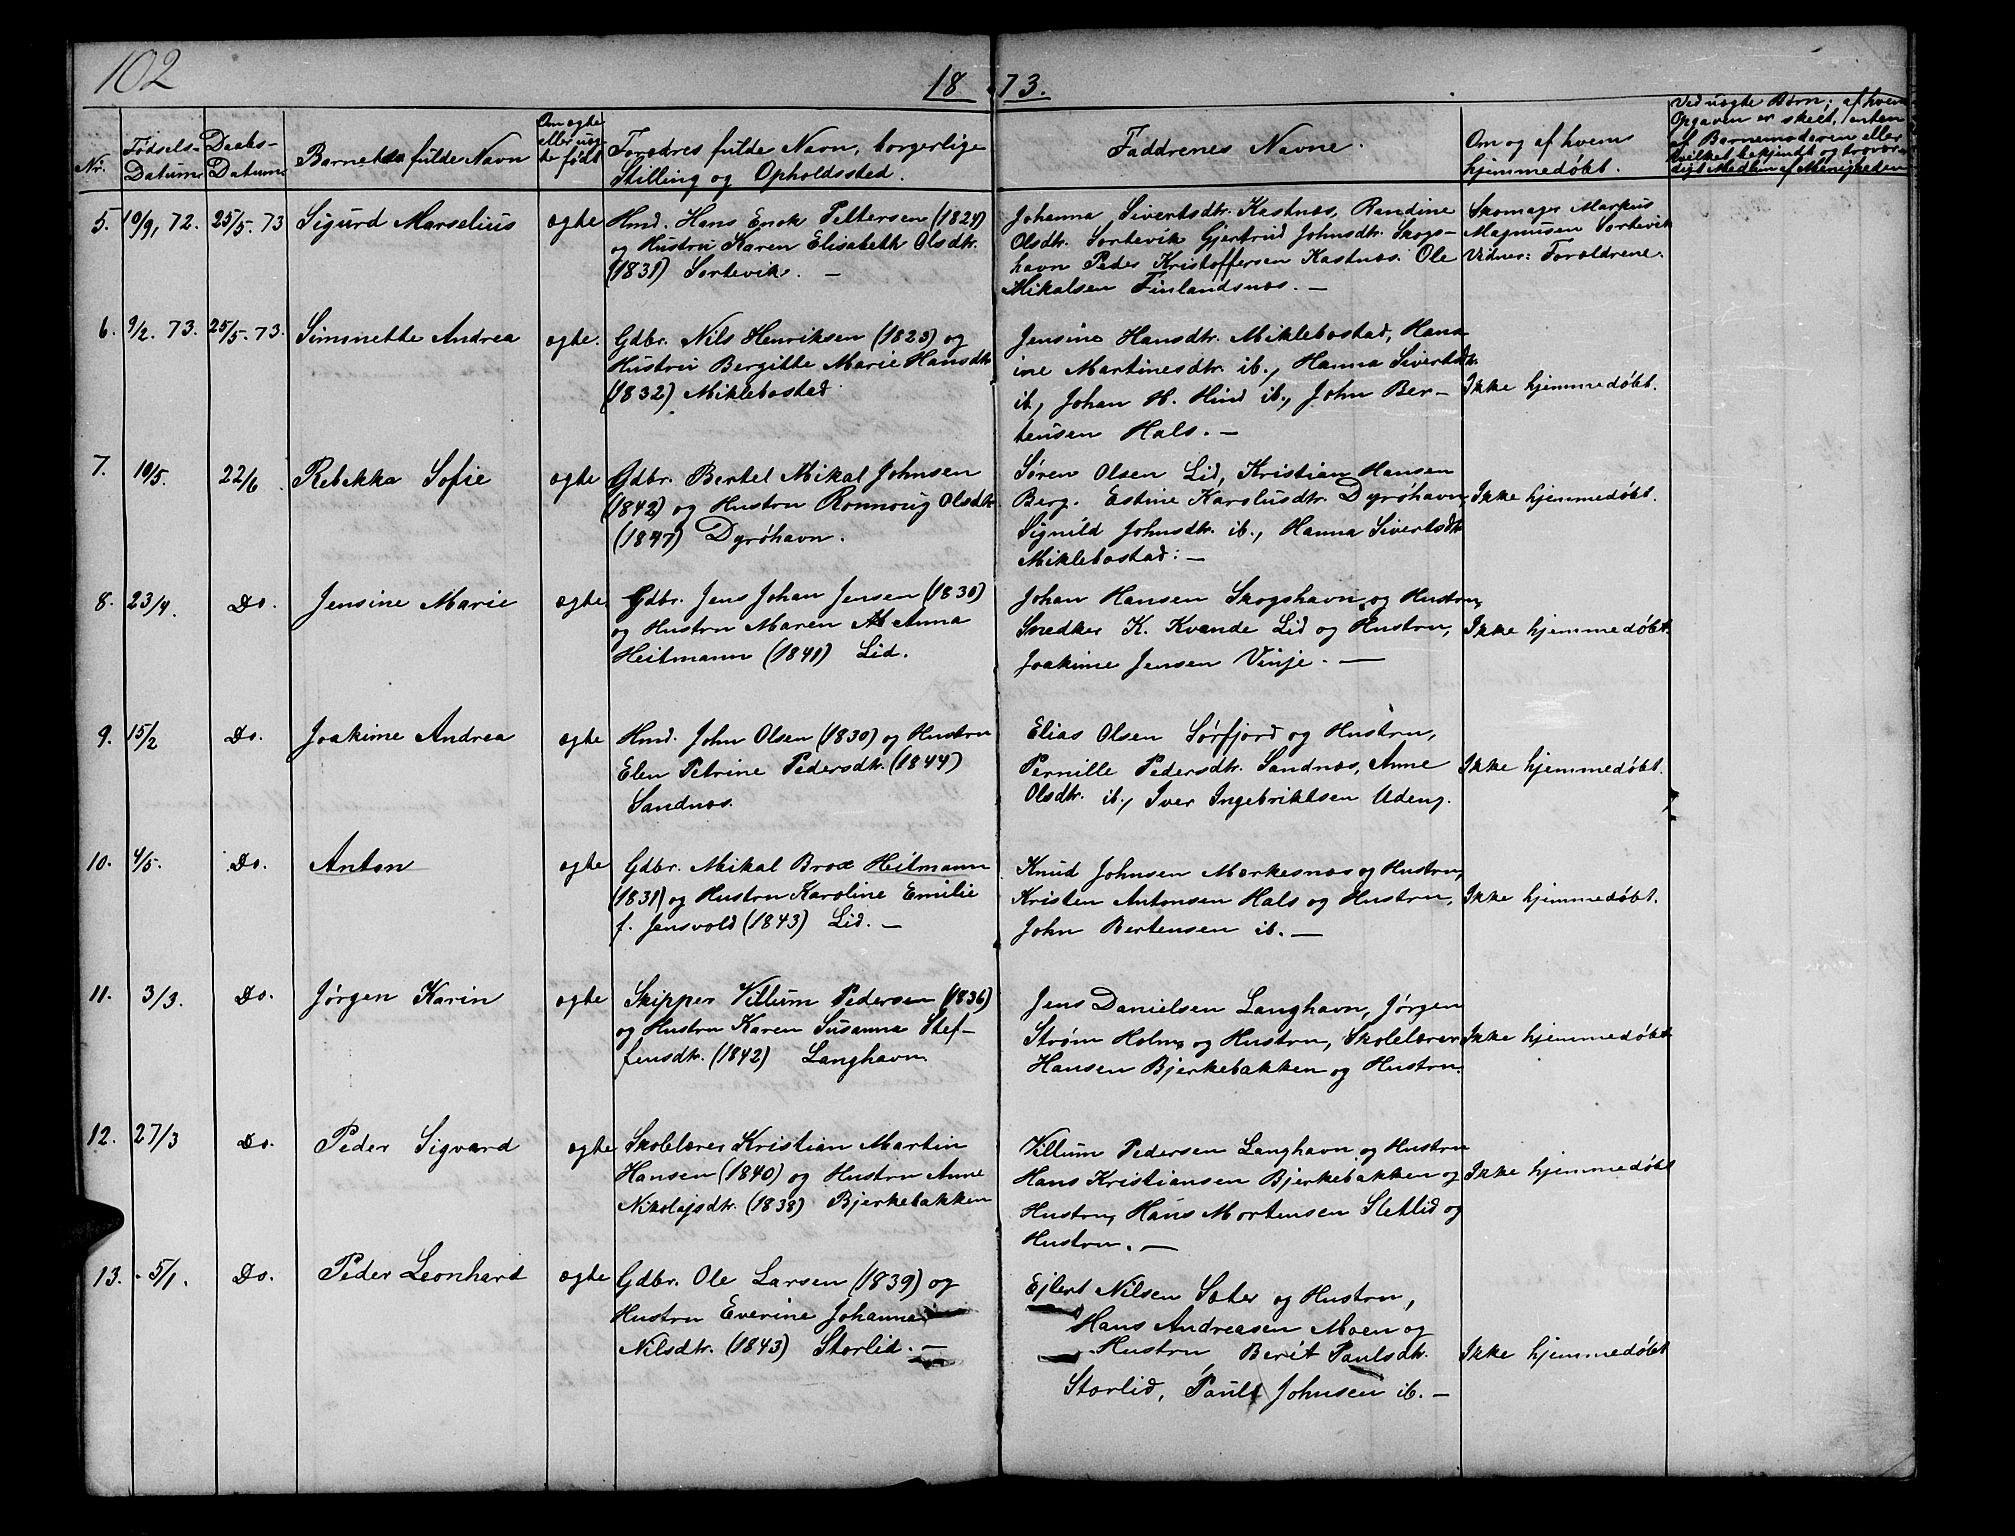 102
1873.
Nr.
Fødsels-
Datum.
Daabs-
Datum.
Barnets fulde Navn
Om ægte
eller uæg-
te født
Forældres fulde Navn, borgerlige
Stilling og Opholdssted.
Faddrenes Navne.
Om og af hvem
hjemmedøbt.
Ved uægte Børn; af hvem
Opgaven er skeet, enten
af Barnemoderen eller
hvilket bekjendt og trovær-
digt Medlem af Menigheden
5.
10/9, 72.
25/5. 73
Sigurd Marselius
ægte
Hmd. Hans Enok Pettersen (1824)
og Hustru Karen Elisabeth Olsdtr.
(1831) Sortevik. —
Johanna Sivertsdtr. Kastnæs, Randine
Olsdtr. Sortevik Gjertrud Johnsdtr. Skogs-
havn Peder Kristoffersen Kastnæs. Ole
Mikalsen Finlandsnæs. —
Skomager Markus
Magnusen Sortevik
Vidner: Forældrene.
6.
9/2. 73.
25/5. 73.
Simnette Andrea
ægte.
Gdbr. Nils Henriksen (1823) og
Hustru Bergitte Marie Hansdtr
(1832) Miklebostad
Jensine Hansdtr. Miklebostad, Hans-
ine Martinesdtr. ib., Hanna Sivertsdtr.
ib., Johan H. Hind ib., John Ber-
tensen Hals. —
Ikke hjemmedøbt.
7.
10/5.
22/6.
Rebekka Sofie
ægte
Gdbr. Bertel Mikal Johnsen
(1842) og Hustru Ronnoug Olsdtr
(1847) Dyrøhavn.
Søren Olsen Lid, Kristian Hansen
Berg. Estine Karolusdtr. Dyrøhavn,
Signild Johnsdtr. ib., Hanna Sivertsdtr
Miklebostad: —
Ikke hjemmedøbt.
8.
23/4.
Do.
Jensine Marie
ægte
Gdbr. Jens Johan Jensen (1830)
og Hustru Maren M Anna
Heitmann (1841) Lid.
Johan Hansen Skogshavn og Hustru,
Snedker K. Kvande Lid og Hustru,
Joakime Jensen Vinje. —
Ikke hjemmedøbt.
9.
15/2
Do.
Joakime Andrea
ægte
Hmd. John Olsen (1830) og Hustru
Elen Petrine Pedersdtr. (1844)
Sandnæs.
Elias Olsen Sørfjord og Hustru,
Pernille Pedersdtr. Sandnæs, Anne
Olsdtr. ib., Iver Ingebriktsen Udeng.
Ikke hjemmedøbt.
10.
4/5.
Do.
Anton
ægte
Gdbr. Mikal Brox Heitmann
(1831) og Hustru Karoline Emilie
f. Jensvold (1843) Lid. —
Knud Johnsen Mærkesnæs og Hustru,
Kristen Antonsen Hals og Hustru,
John Bertensen ib. —
Ikke hjemmedøbt.
11.
3/3.
Do.
Jørgen Karin
ægte
Skipper Villum Pedersen (1836)
og Hustru Karen Susanna Stef-
fensdtr. (1842) Langhavn
Jens Danielsen Langhavn, Jørgen
Strøm Holm og Hustru, Skolelærer
Hansen Bjerkebakken og Hustru.
Ikke hjemmedøbt
12.
27/3
Do.
Peder Sigvard
ægte
Skolelærer Kristian Martin
Hansen (1840) og Hustru Anne
Nikolajsdtr. (1838) Bjerkebakken
Villum Pedersen Langhavn og Hustru
Hans Kristiansen Bjerkebakken og
Hustru, Hans Mortensen Sletlid og
Hustru. —
Ikke hjemmedøbt
13.
5/1.
Do.
Peder Leonhard
ægte
Gdbr. Ole Larsen (1839) og
Hustru Everine Johanna
Nilsdtr. (1843) Storlid. —
Ejlert Nilsen Sæter og Hustru,
Hans Andreasen Moen og
Hustru Berit Paulsdtr.
Storlid, Paul Johnsen ib. —
Ikke hjemmedøbt